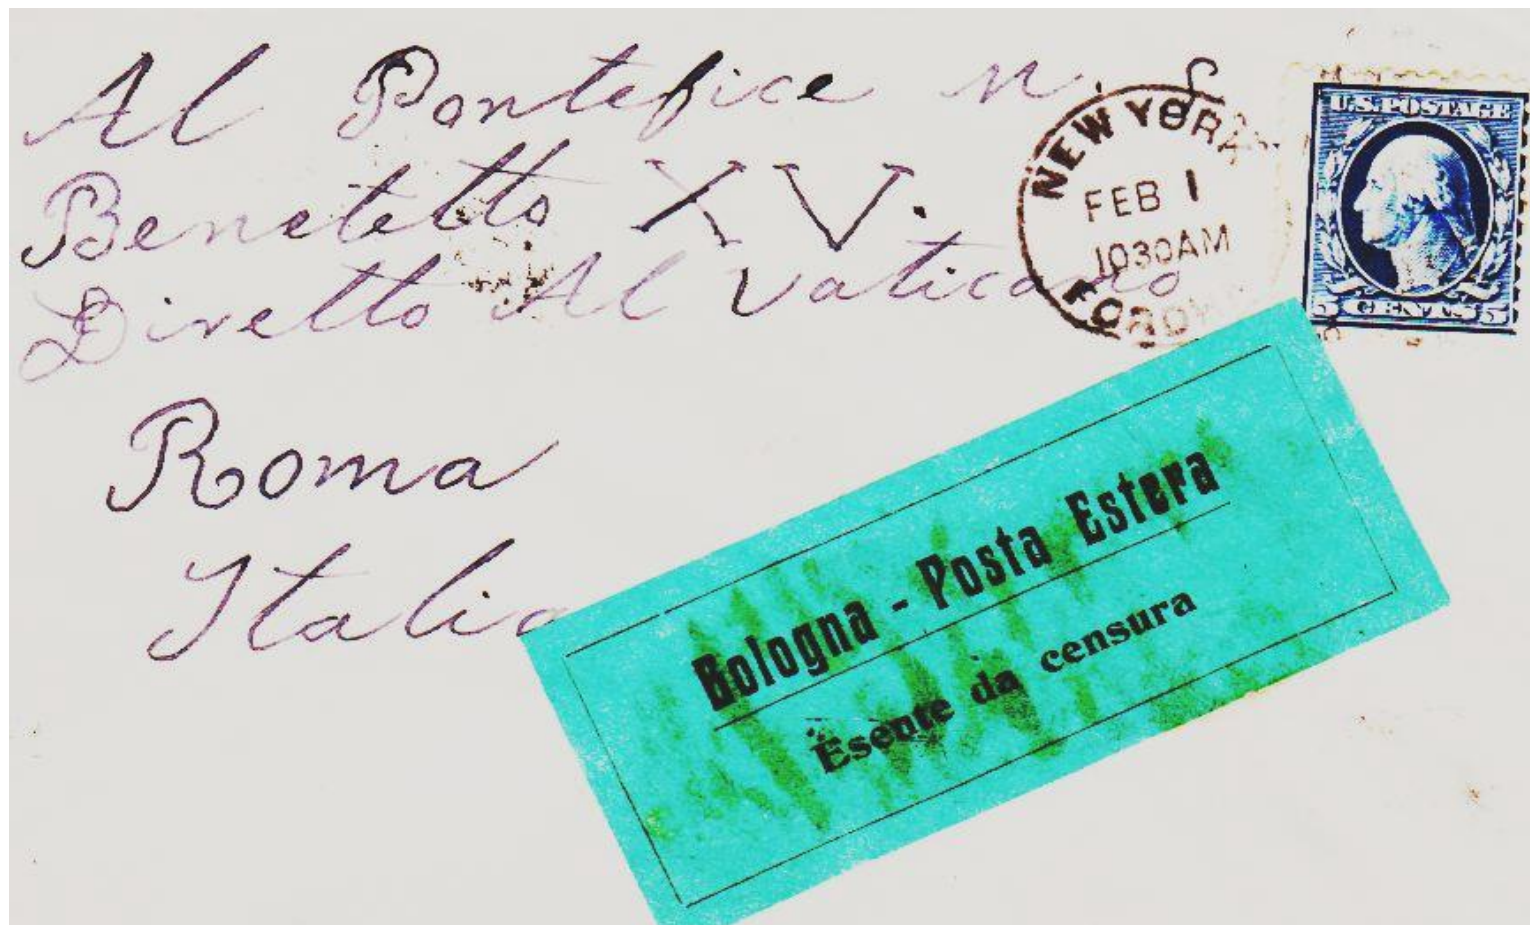 Al Pontefice N. S.
Benetetto XV.
Diretto Al Vaticano
Roma
Italia
NEW YORK
FEB 1
1030AM
U.S. POSTAGE
5 CENTS 5
Bologna - Posta Estera
Esente da censura